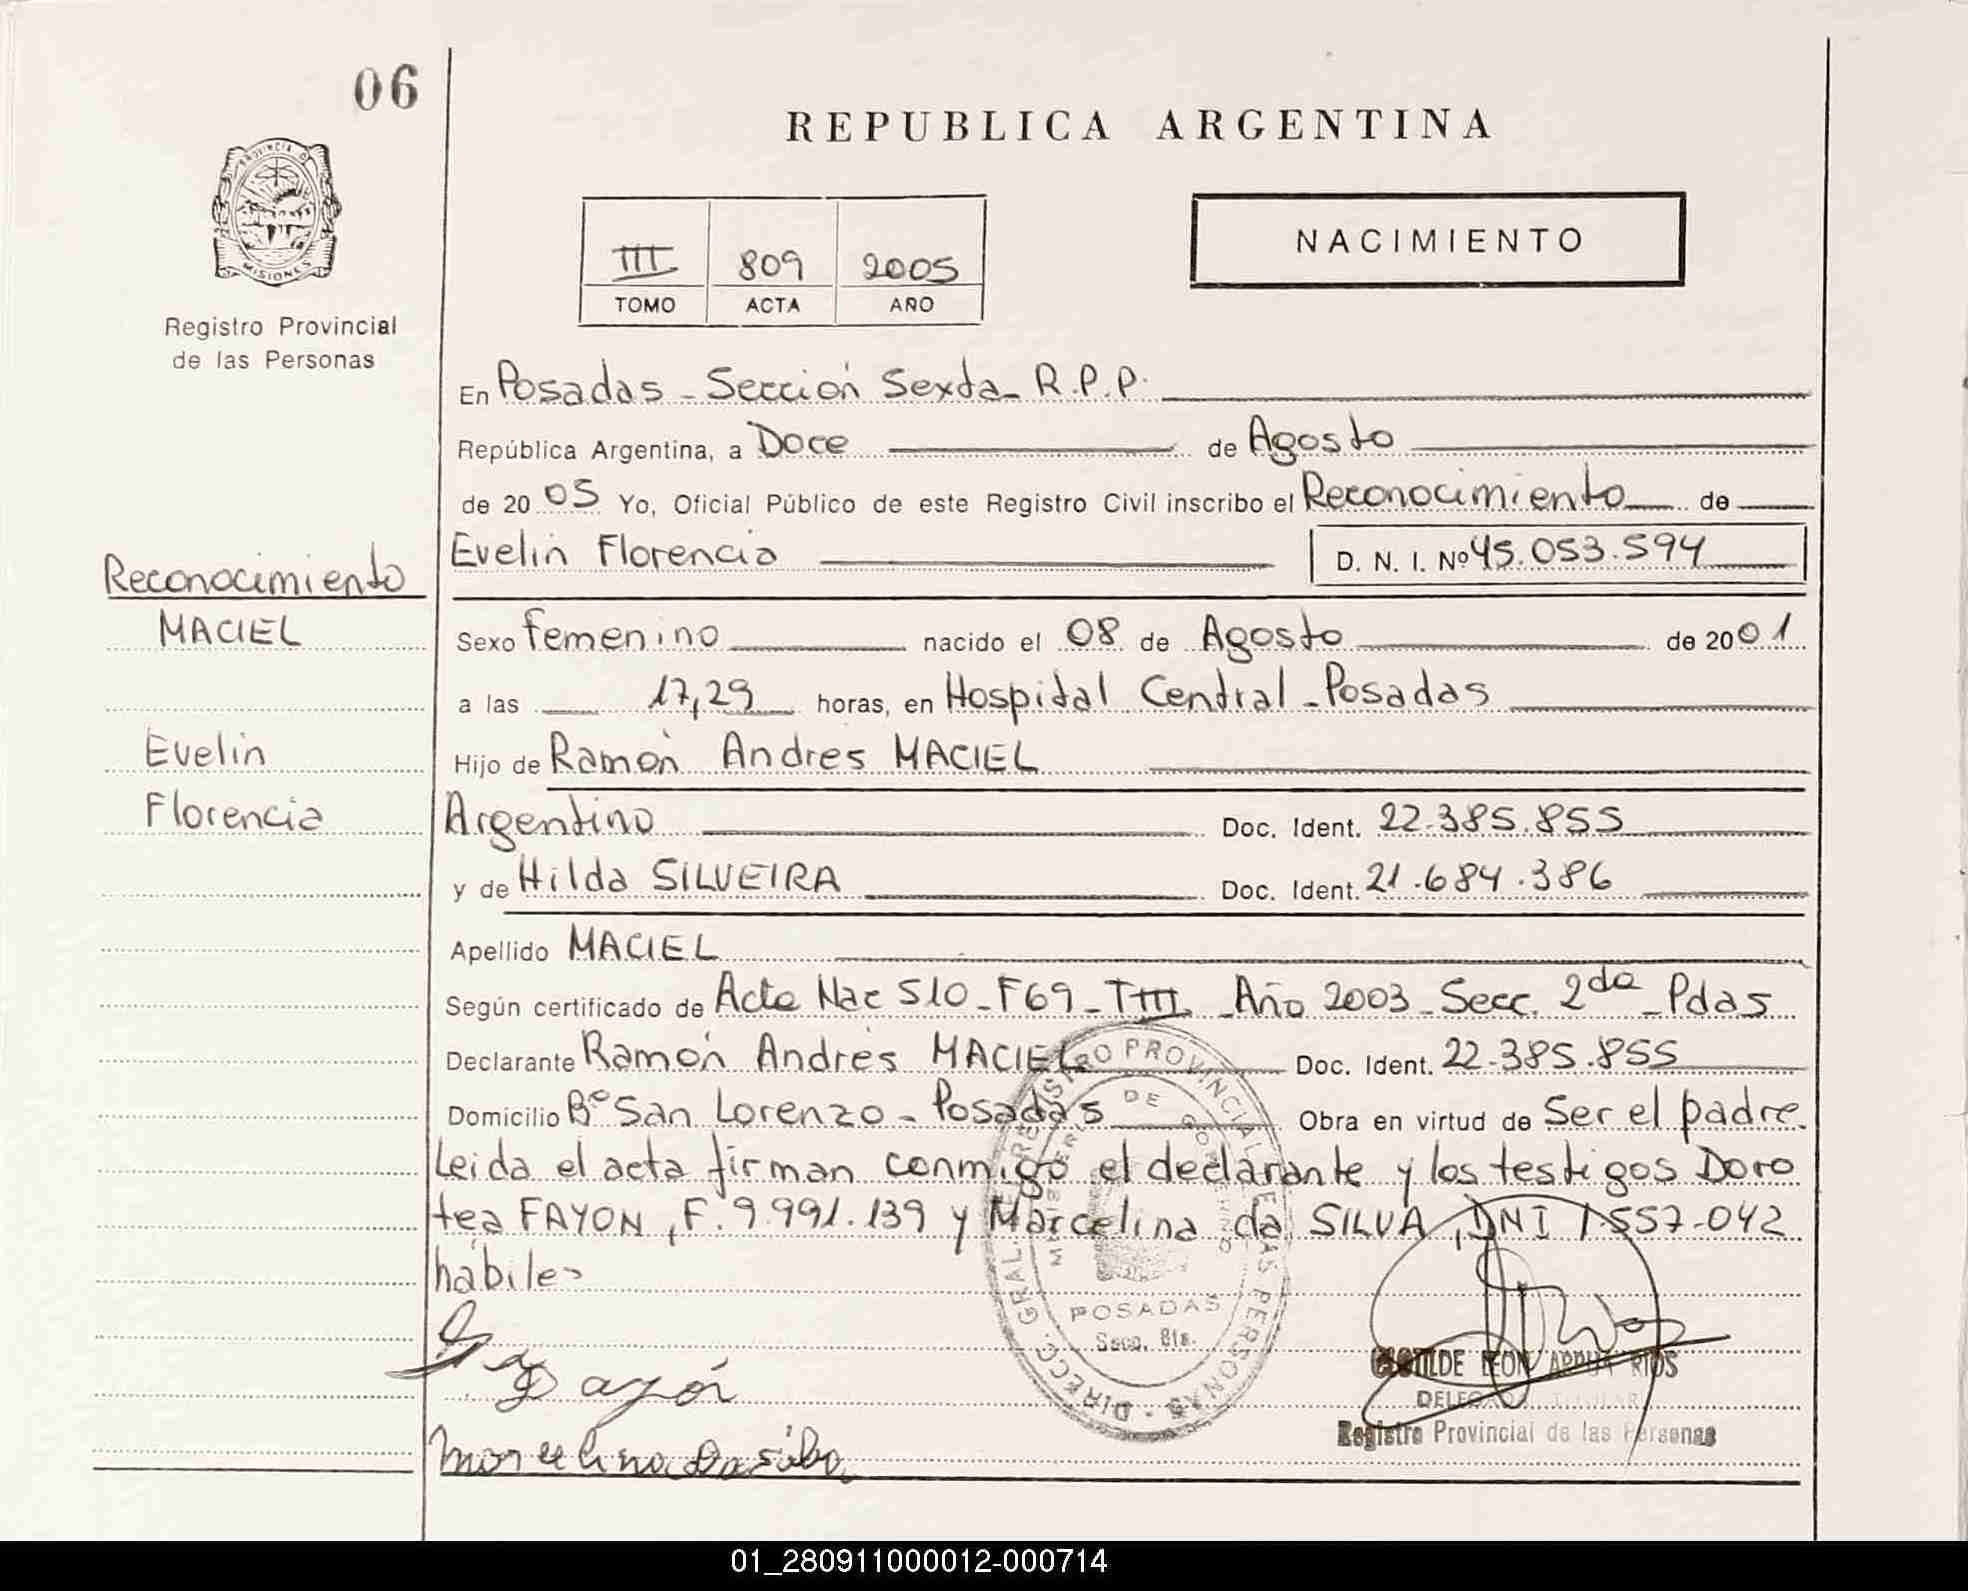 06
REPUBLICA ARGENTINA
PROVINCIA D
MISIONES
Registro Provincial
de las Personas
III 809 2005
TOMO ACTA AÑO
NACIMIENTO
En Posadas - Sección Sexta - R.P.P.
República Argentina, a Doce de Agosto
de 2005 Yo, Oficial Público de este Registro Civil inscribo el Reconocimiento de
Evelin Florencia D. N. I. Nº 45.053.594
Reconocimiento
MACIEL
Evelin
Florencia
Sexo femenino nacido el 08 de Agosto de 2001
a las 17,29 horas, en Hospital Central - Posadas
Hijo de Ramón Andres MACIEL
Argentino Doc. Ident. 22.385.855
y de Hilda SILVEIRA Doc. Ident. 21.684.386
Apellido MACIEL
Según certificado de Acta Nac 510 - F69 - TIII - Año 2003 - Secc. 2da - Pdas
Declarante Ramón Andrés MACIEL Doc. Ident. 22.385.855
Domicilio Bº San Lorenzo - Posadas Obra en virtud de Ser el padre.
Leida el acta firman conmigo el declarante y los testigos Doro
tea FAYON, F. 9.991.139 y Marcelina da SILVA, DNI 1.557.042
hábiles
DIRECC. GRAL. DE REGISTRO PROVINCIAL DE LAS PERSONAS
MINISTERIO DE GOBIERNO
POSADAS
Secc. 6ta.
Fayón
Marcelina Da Silva
LEON RIOS
Registro Provincial de las Personas
01_280911000012-000714